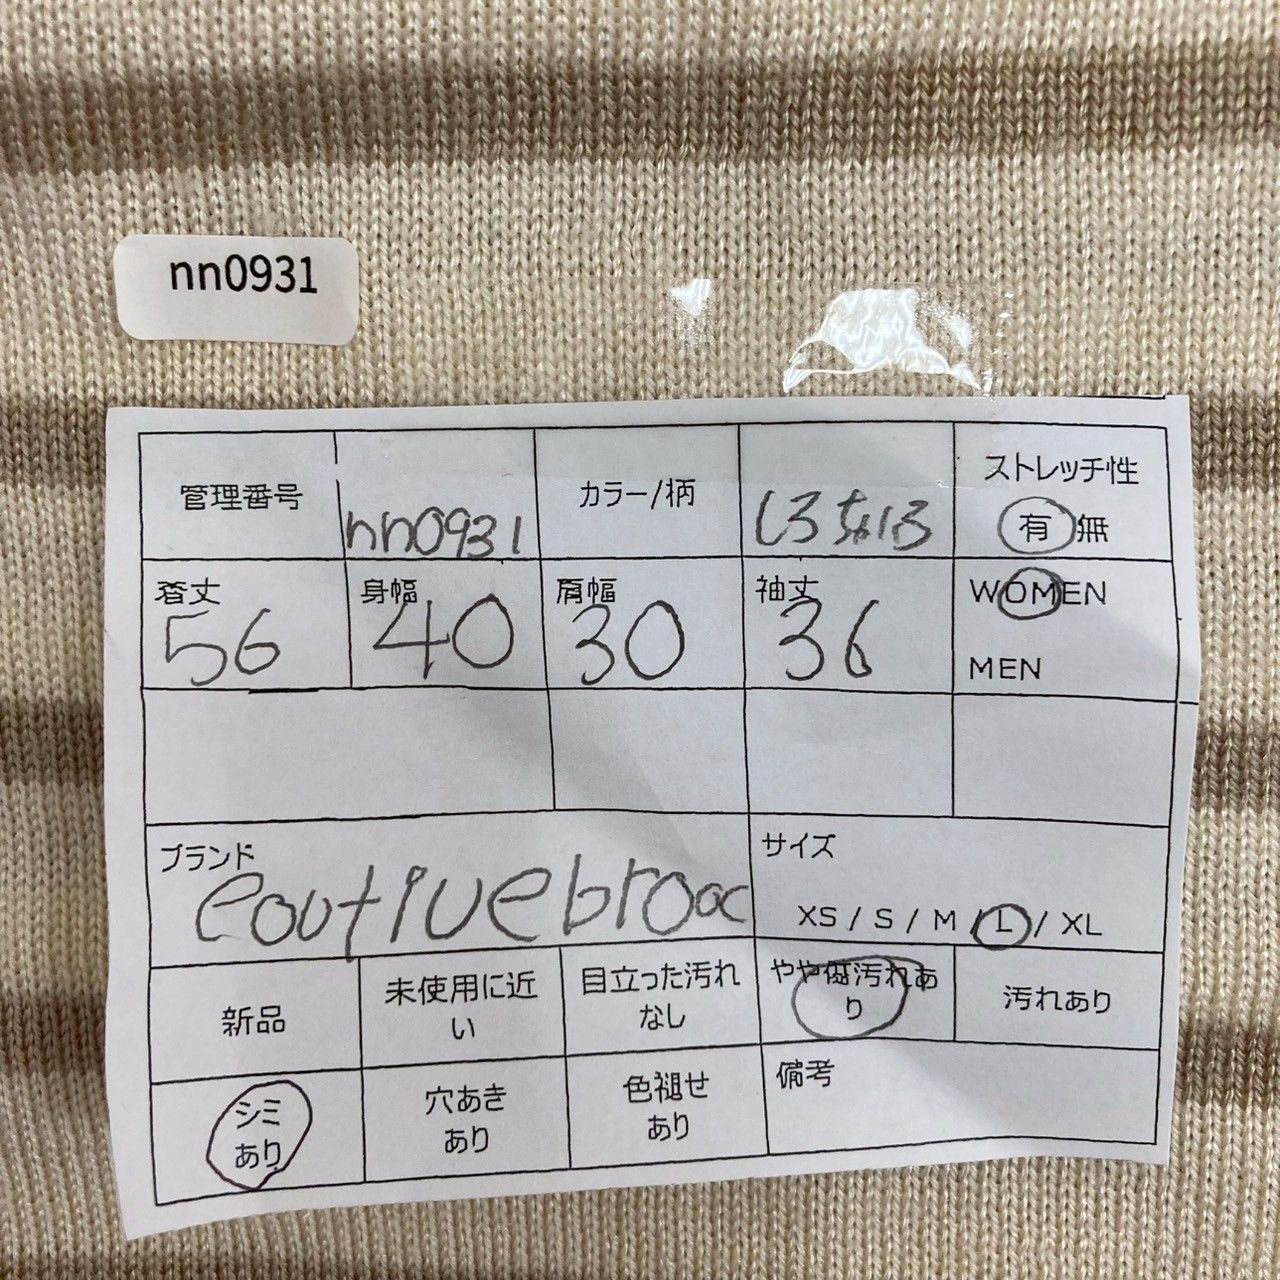 nn0931
管理番号
nn0931
カラー/柄
しろちゃいろ
ストレッチ性
有 無
着丈
56
身幅
40
肩幅
30
袖丈
36
WOMEN
MEN
ブランド
サイズ
XS / S / M / L / XL
新品
未使用に近
い
目立った汚れ
なし
やや傷汚れあ
り
汚れあり
シミ
あり
穴あき
あり
色褪せ
あり
備考